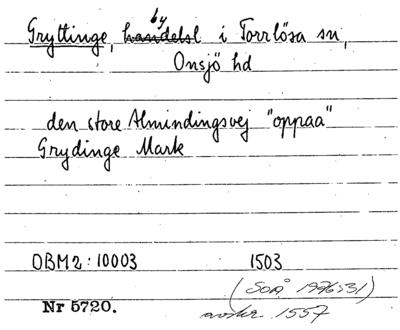 by
Gryttinge, handelsl i Torrlösa sn,
Onsjö hd
den store Almindingsvej "oppaa"
Grydinge Mark
OBM2:10003 1503
(SOÅ 1976:31)
avskr. 1557
Nr 5720.